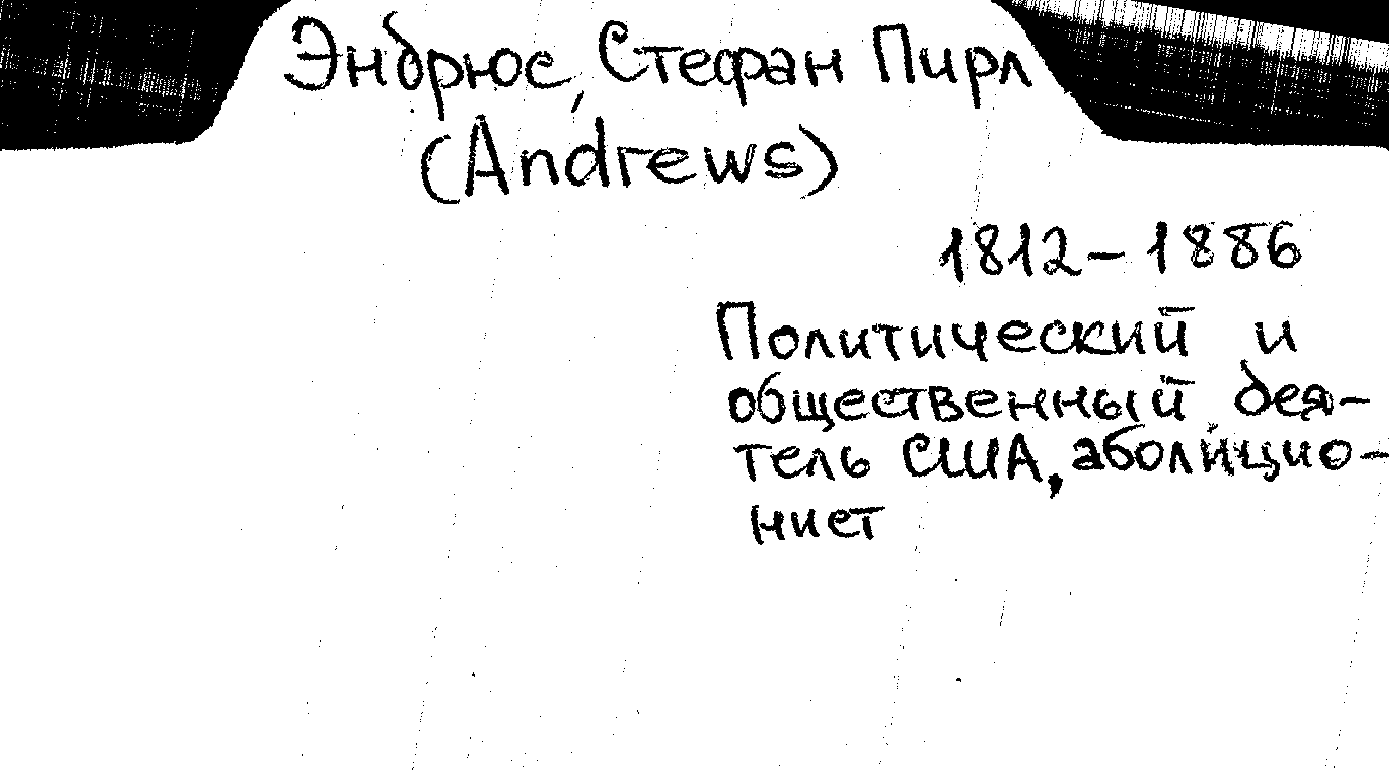 Эндрюс, Стефан Пирл
(Andrews)
1812-1886
Политический и
общественный дея-
тель США, аболицио-
нист